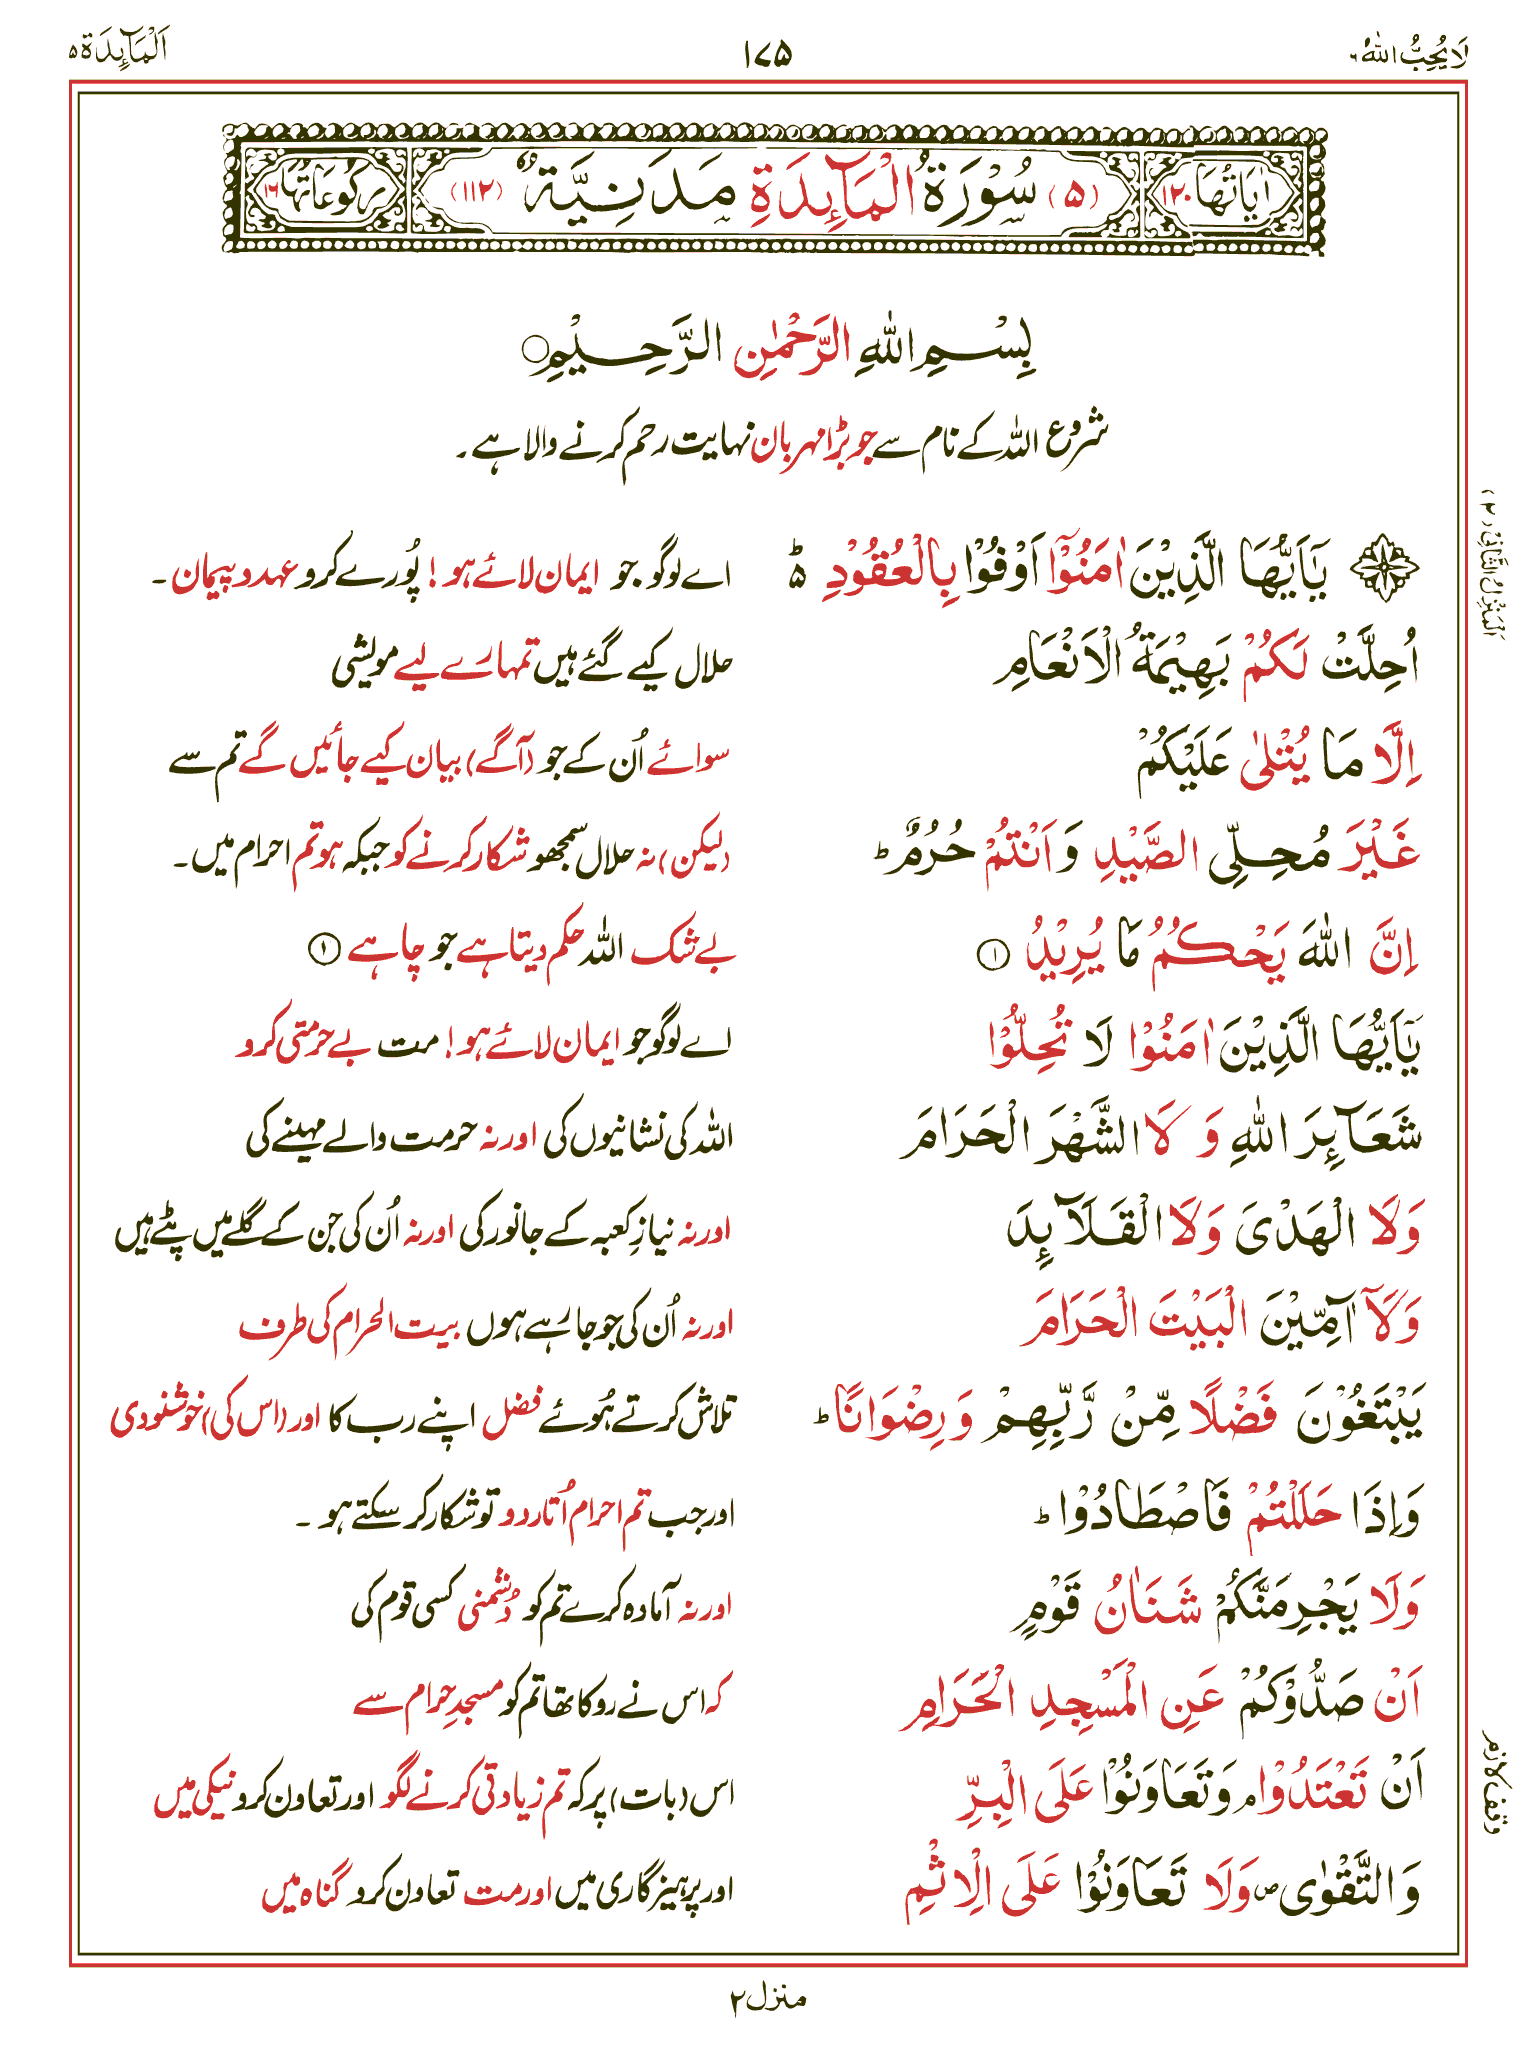 لَا يُحِبُّ اللهُ ۶ ۱۷۵ اَلْمَآىِٕدَة ۵
اٰيَاتُهَا ۱۲۰ (۵) سُوْرَةُ الْمَآىِٕدَةِ مَدَنِيَّةٌ (۱۱۲) رُكُوْعَاتُهَا ۱۶
بِسْمِ اللهِ الرَّحْمٰنِ الرَّحِيْمِ
شروع اللہ کے نام سے جو بڑا مہربان نہایت رحم کرنے والا ہے۔
يٰۤاَيُّهَا الَّذِيْنَ اٰمَنُوْۤا اَوْفُوْا بِالْعُقُوْدِ ؕ۵ اے لوگو جو ایمان لائے ہو! پُورے کرو عہد و پیمان۔
اُحِلَّتْ لَكُمْ بَهِيْمَةُ الْاَنْعَامِ حلال کیے گئے ہیں تمہارے لیے مویشی
اِلَّا مَا يُتْلٰى عَلَيْكُمْ سوائے اُن کے جو (آگے) بیان کیے جائیں گے تم سے
غَيْرَ مُحِلِّي الصَّيْدِ وَاَنْتُمْ حُرُمٌ ؕ (لیکن) نہ حلال سمجھو شکار کرنے کو جبکہ ہو تم احرام میں۔
اِنَّ اللهَ يَحْكُمُ مَا يُرِيْدُ ۱ بے شک اللہ حکم دیتا ہے جو چاہے ۱
يٰۤاَيُّهَا الَّذِيْنَ اٰمَنُوْا لَا تُحِلُّوْا اے لوگو جو ایمان لائے ہو! مت بے حرمتی کرو
شَعَآىِٕرَ اللهِ وَ لَا الشَّهْرَ الْحَرَامَ اللہ کی نشانیوں کی اور نہ حرمت والے مہینے کی
وَلَا الْهَدْيَ وَلَا الْقَلَآىِٕدَ اور نہ نیازِ کعبہ کے جانور کی اور نہ اُن کی جن کے گلے میں پٹے ہیں
وَلَاۤ اٰۤمِّيْنَ الْبَيْتَ الْحَرَامَ اور نہ اُن کی جو جا رہے ہوں بیت الحرام کی طرف
يَبْتَغُوْنَ فَضْلًا مِّنْ رَّبِّهِمْ وَرِضْوَانًا ؕ تلاش کرتے ہُوئے فضل اپنے رب کا اور (اس کی) خوشنودی
وَاِذَا حَلَلْتُمْ فَاصْطَادُوْا ؕ اور جب تم احرام اُتار دو تو شکار کر سکتے ہو۔
وَلَا يَجْرِمَنَّكُمْ شَنَاٰنُ قَوْمٍ اور نہ آمادہ کرے تم کو دُشمنی کسی قوم کی
اَنْ صَدُّوْكُمْ عَنِ الْمَسْجِدِ الْحَرَامِ کہ اس نے روکا تھا تم کو مسجدِ حرام سے
اَنْ تَعْتَدُوْا ۘ وَتَعَاوَنُوْا عَلَى الْبِرِّ اس (بات) پر کہ تم زیادتی کرنے لگو اور تعاون کرو نیکی میں
وَالتَّقْوٰى ص وَلَا تَعَاوَنُوْا عَلَى الْاِثْمِ اور پرہیزگاری میں اور مت تعاون کرو گناہ میں
اَلْمَنْزِلُ الثَّانِيْ (۲)
وقف لازم
منزل ۲